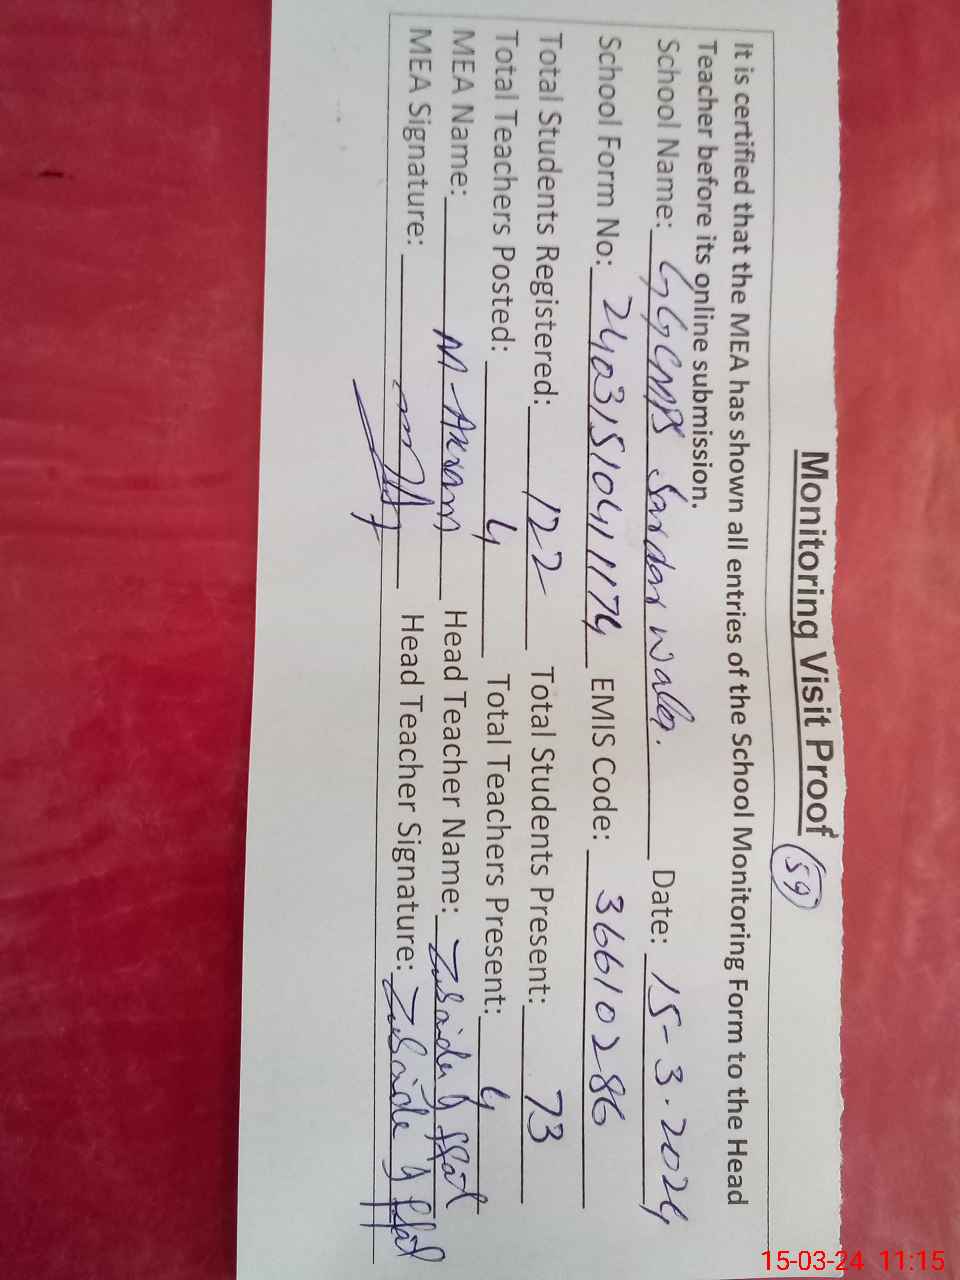 Monitoring Visit Proof
59
It is certified that the MEA has shown all entries of the School Monitoring Form to the Head
Teacher before its online submission.
School Name: GGCMPS Sardar wala. Date: 15-3-2024
School Form No: 24031510411174 EMIS Code: 36610286
Total Students Registered: 122 Total Students Present: 73
Total Teachers Posted: 4 Total Teachers Present: 4
MEA Name: M-Akram Head Teacher Name: Zubaida
MEA Signature: Head Teacher Signature: Zubaida
15-03-24 11:15